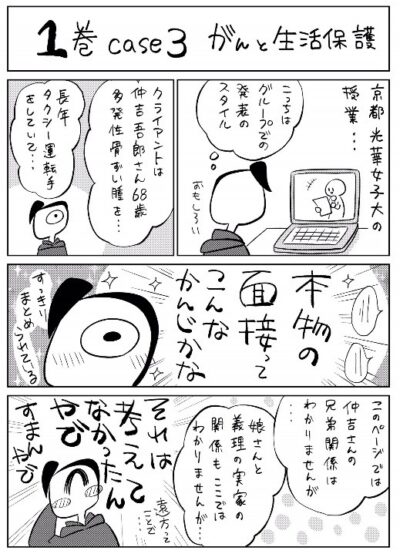 1巻 case3 がんと生活保護
京都光華女子大の
授業・・・
こっちは
グループでの
発表の
スタイル
おもしろい
クライアントは
仲吉吾郎さん68歳
多発性骨ずい腫を・・・
長年
タクシー運転手
をしていて・・・
本物の
面接って
こんな
かんじかな
すっきり
まとめられている
このページでは
仲吉さんの
兄弟関係は
わかりませんが
・・・
娘さんと
義理の実家の
関係もここでは
わかりませんが・・・
それは
考えて
なかったん
やで
すまんやで
遠方って
ことで